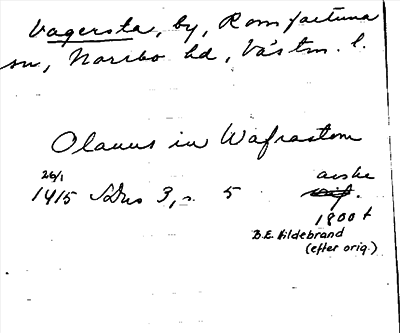 Vagersta, by, Romfartuna
sn, Norrbo hd, Västm. l.
Olauus in Wafrastom
26/1
1415 SDns 3, s. 5 avskr
1800 t
B.E. Hildebrand
(efter orig.)